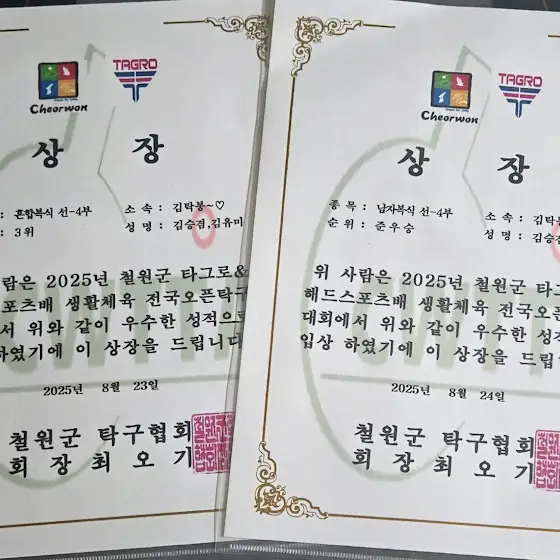 Cheorwon
TAGRO
상 장
: 혼합복식 선-4부
소 속 : 김탁봉~♡
: 3위
성 명 : 김승겸,김유미
람은 2025년 철원군 타그로&
포츠배 생활체육 전국오픈탁구
서 위와 같이 우수한 성적으
하였기에 이 상장을 드립니다
2025년 8월 23일
철원군 탁구협회
회 장 최 오 기
Cheorwon
TAGRO
상 장
종 목 : 남자복식 선-4부
소 속 : 김탁
순 위 : 준우승
성 명 : 김승
위 사람은 2025년 철원군 타
헤드스포츠배 생활체육 전국오픈
대회에서 위와 같이 우수한 성
입상 하였기에 이 상장을 드립
2025년 8월 24일
철원군 탁구협회
회 장 최 오 기